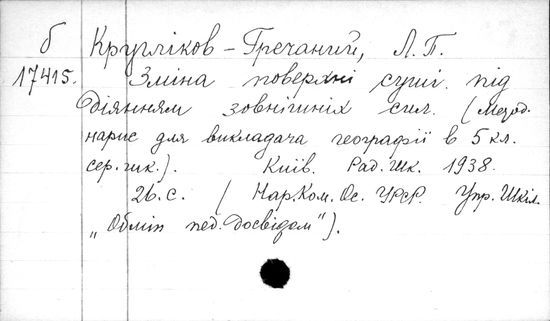 б Кругліков-Гречаний, Л.П.
17415. Зміна поверхні суші під
діянням зовнішніх сил. (Метод.
нарис для викладача географії в 5 кл.
сер. шк.). Київ. Рад. шк. 1938.
26.с. (Нар.Ком.Ос. УРСР. Упр. Шкіл.
„Обмін пед. досвідом").